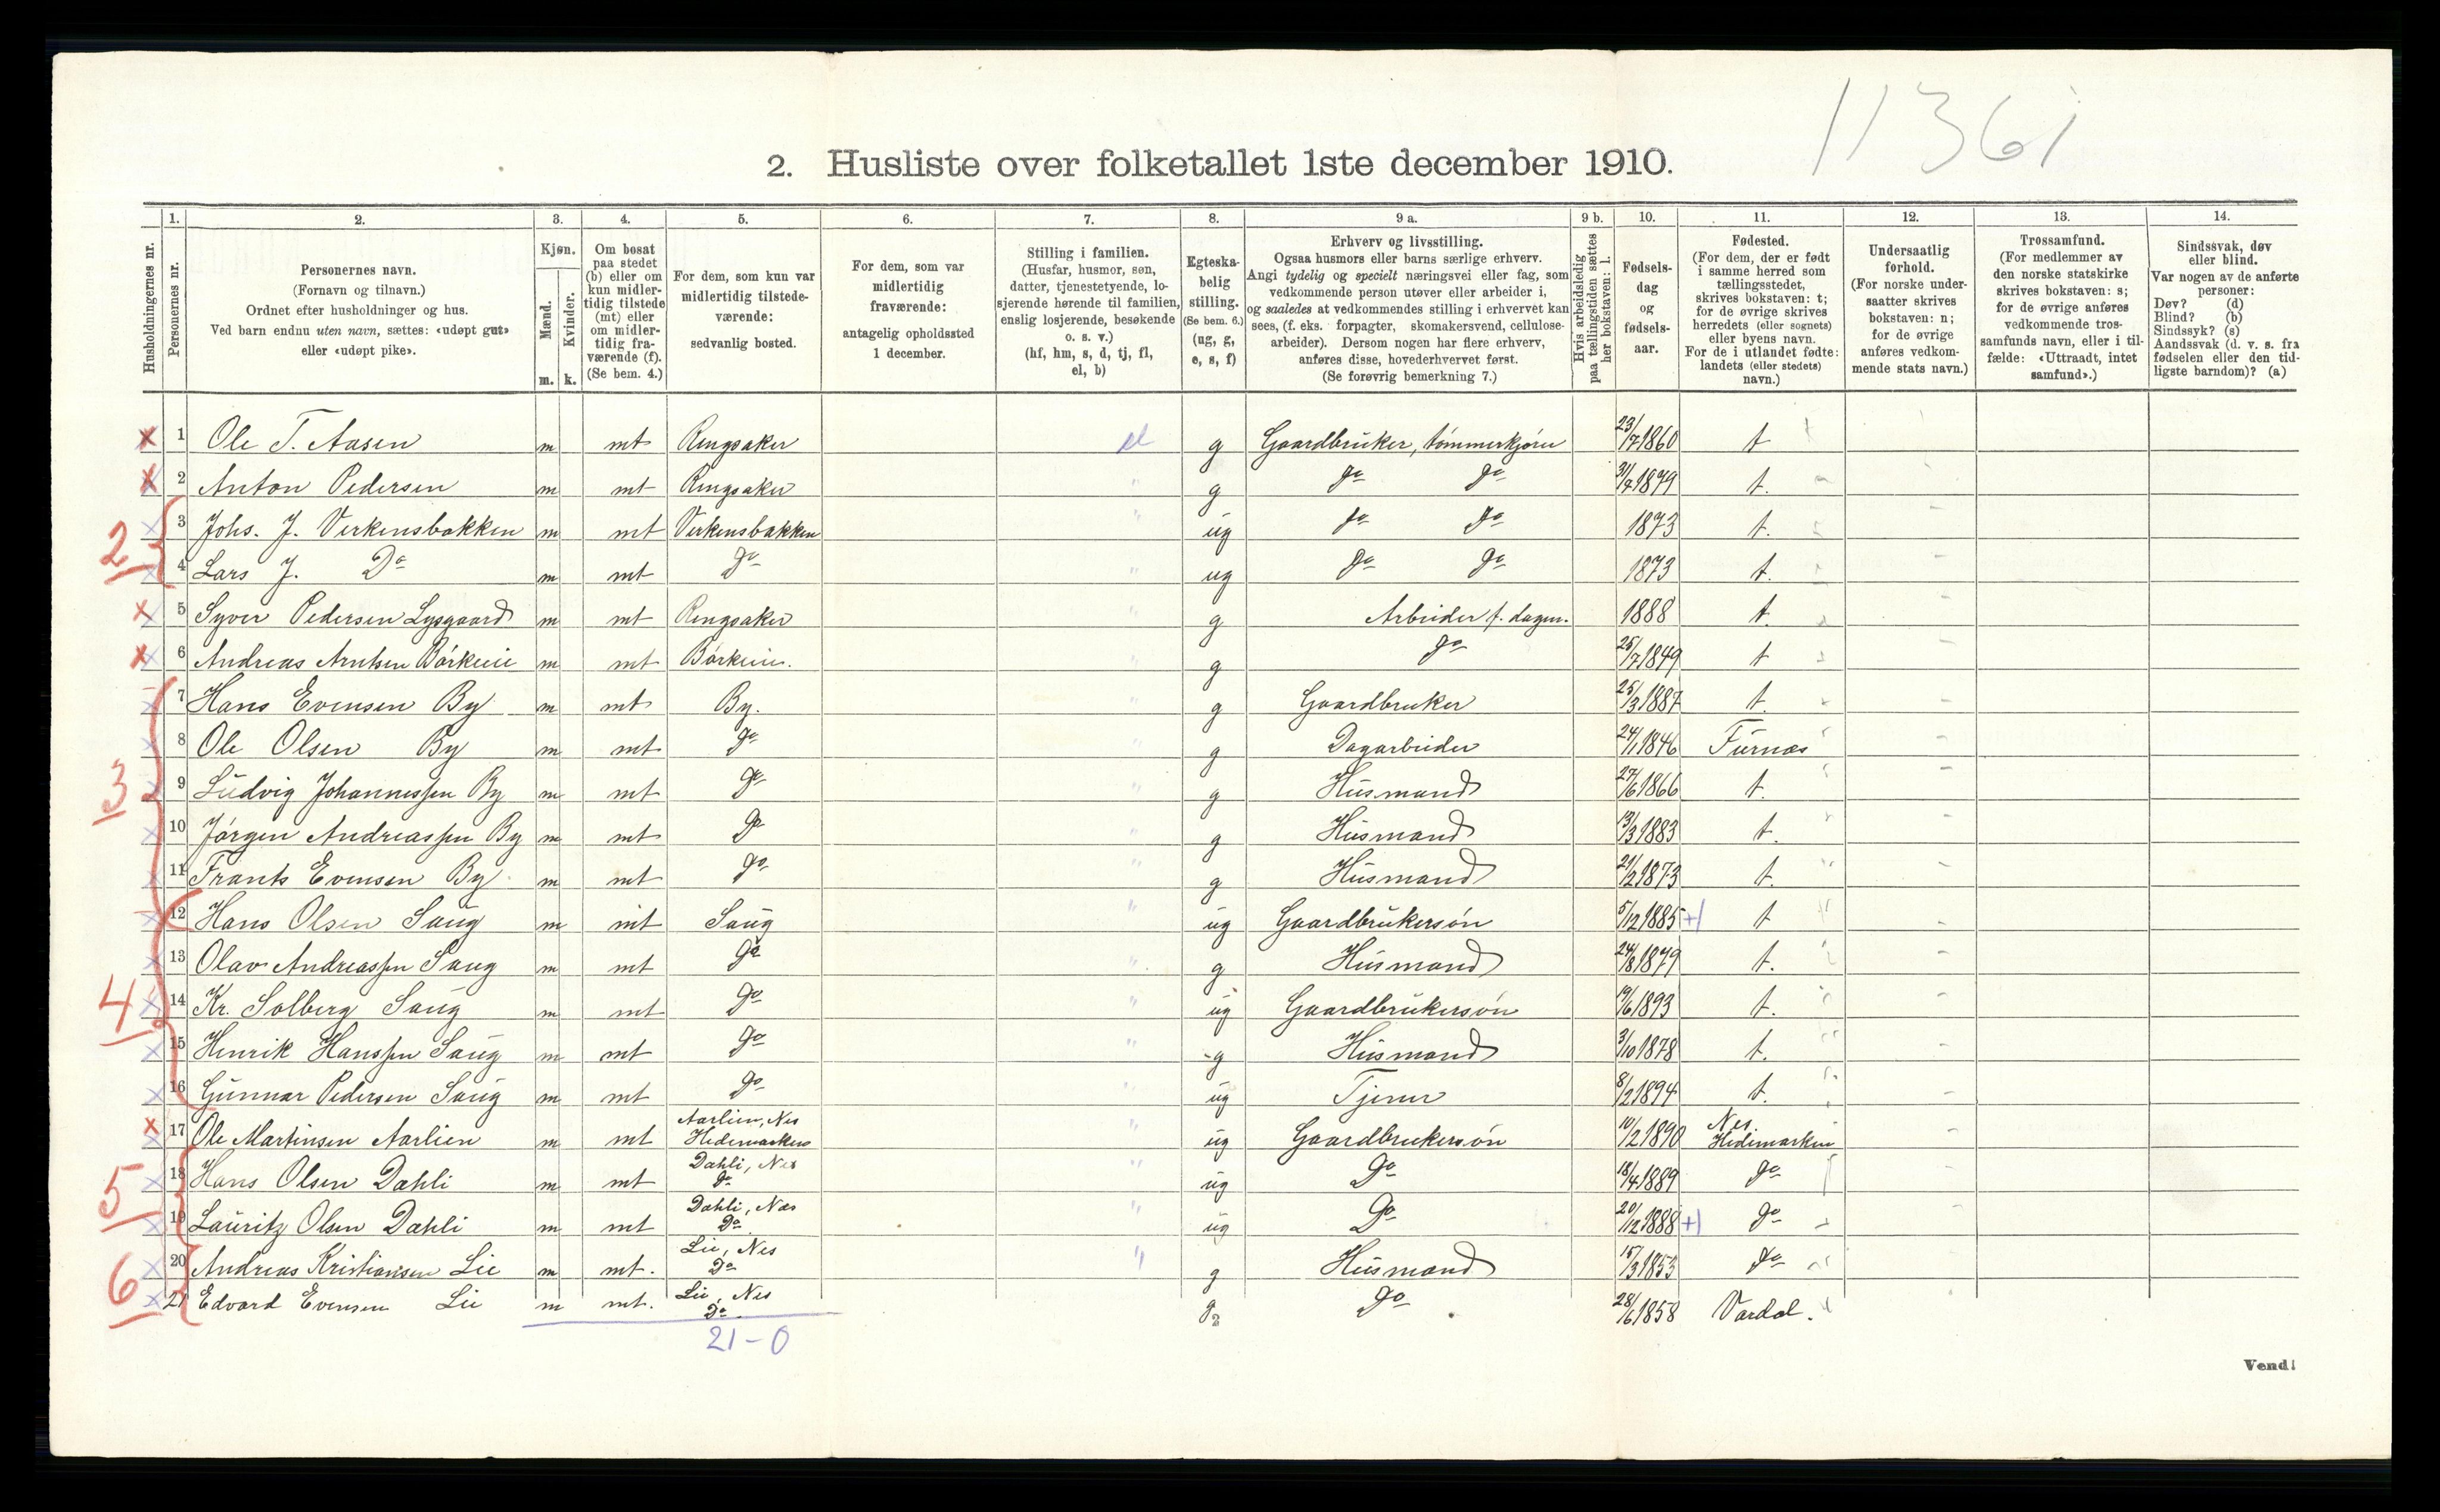 11361
2. Husliste over folketallet 1ste december 1910.
1. 2. 3. 4. 5. 6. 7. 8. 9 a. 9 b. 10. 11. 12. 13. 14.
Husholdningernes nr.
Personernes nr.
Personernes navn.
(Fornavn og tilnavn.)
Ordnet efter husholdninger og hus.
Ved barn endnu uten navn, sættes: «udøpt gut»
eller «udøpt pike».
Kjøn.
Mænd.
Kvinder.
m. k.
Om bosat
paa stedet
(b) eller om
kun midler-
tidig tilstede
(mt) eller
om midler-
tidig fra-
værende (f).
(Se bem. 4.)
For dem, som kun var
midlertidig tilstede-
værende:
sedvanlig bosted.
For dem, som var
midlertidig
fraværende:
antagelig opholdssted
1 december.
Stilling i familien.
(Husfar, husmor, søn,
datter, tjenestetyende, lo-
sjerende hørende til familien,
enslig losjerende, besøkende
o. s. v.)
(hf, hm, s, d, tj, fl,
el, b)
Egteska-
belig
stilling.
(Se bem. 6.)
(ug, g,
e, s, f)
Erhverv og livsstilling.
Ogsaa husmors eller barns særlige erhverv.
Angi tydelig og specielt næringsvei eller fag, som
vedkommende person utøver eller arbeider i,
og saaledes at vedkommendes stilling i erhvervet kan
sees, (f. eks. forpagter, skomakersvend, cellulose-
arbeider). Dersom nogen har flere erhverv,
anføres disse, hovederhvervet først.
(Se forøvrig bemerkning 7.)
Hvis arbeidsledig
paa tællingstiden sættes
her bokstaven: l.
Fødsels-
dag
og
fødsels-
aar.
Fødested.
(For dem, der er født
i samme herred som
tællingsstedet,
skrives bokstaven: t;
for de øvrige skrives
herredets (eller sognets)
eller byens navn.
For de i utlandet fødte:
landets (eller stedets)
navn.)
Undersaatlig
forhold.
(For norske under-
saatter skrives
bokstaven: n;
for de øvrige
anføres vedkom-
mende stats navn.)
Trossamfund.
(For medlemmer av
den norske statskirke
skrives bokstaven: s;
for de øvrige anføres
vedkommende tros-
samfunds navn, eller i til-
fælde: «Uttraadt, intet
samfund».)
Sindssvak, døv
eller blind.
Var nogen av de anførte
personer:
Døv? (d)
Blind? (b)
Sindssyk? (s)
Aandssvak (d. v. s. fra
fødselen eller den tid-
ligste barndom)? (a)
1 Ole T. Aasen m mt Ringsaker el g Gaardbruker, tømmerkjører 23/7 1860 t
2 Anton Pedersen m mt Ringsaker " g Do Do 31/7 1879 t.
2 3 Johs. J. Verkensbakken m mt Verkensbakken " ug Do Do 1873 t.
4 Lars J. Do m mt Do " ug Do Do 1873 t.
5 Syver Pedersen Lysgaard m mt Ringsaker " g Arbeider f. dagen. 1888 t.
6 Andreas Arntsen Børkeeie m mt Børkeeie. " g Do 25/7 1849 t
7 Hans Evensen By m mt By. " g Gaardbruker 25/3 1887 t.
8 Ole Olsen By m mt Do " g Dagarbeider 24/1 1846 Furnæs
3 9 Ludvig Johannessen By m mt Do " g Husmand 27/6 1866 t.
10 Jørgen Andreassen By m mt Do " g Husmand 13/3 1883 t.
11 Frants Evensen By m mt Do " g Husmand 21/2 1873 t.
12 Hans Olsen Saug m mt Saug " ug Gaardbrukersøn 5/12 1885 +1 t
13 Olav Andreassen Saug m mt Do " g Husmand 24/8 1879 t.
4 14 Kr. Solberg Saug m mt Do " ug Gaardbrukersøn 19/6 1893 t.
15 Henrik Hanssen Saug m mt Do " g Husmand 3/10 1878 t.
16 Gunnar Pedersen Saug m mt Do " ug Tjener 8/2 1894 t.
17 Ole Martinsen Aarlien m mt Aarlien, Nes Hedemarken " ug Gaardbrukersøn 10/2 1890 Nes. Hedemarken
5 18 Hans Olsen Dahli m mt Dahli, Nes Do " ug Do 18/4 1889 Do
19 Lauritz Olsen Dahli m mt Dahli, Nes Do " ug Do 20/12 1888 +1 Do
20 Andreas Kristiansen Lie m mt. Lie, Nes Do " g Husmand 15/3 1853 Do
6 21 Edvard Evensen Lie m mt. Lie, Nes Do. g Do 28/6 1858 Vardal.
21 - 0
Vend!